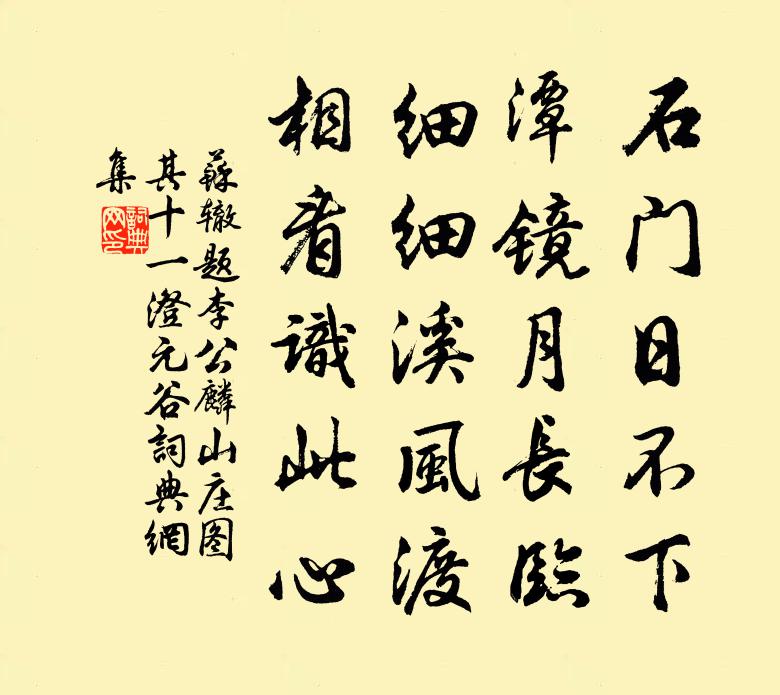 石门日不下
潭镜月長臨
细细溪風渡
相看識此心
蘇辙题李公麟山庄图
其十一澄元谷詞典網
集
詞典网印